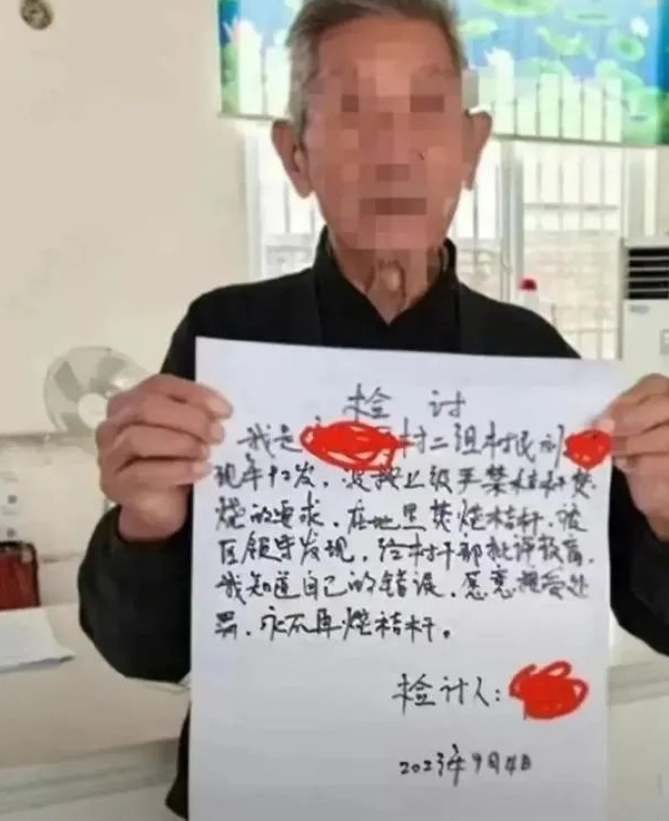 检 讨
我是村二组村民刘
现年92岁，没按上级严禁秸秆焚
烧的要求，在地里焚烧秸秆，被
区领导发现，给村干部批评教育，
我知道自己的错误，愿意接受处
罚，永不再烧秸秆。
检讨人：
2023年9月4日